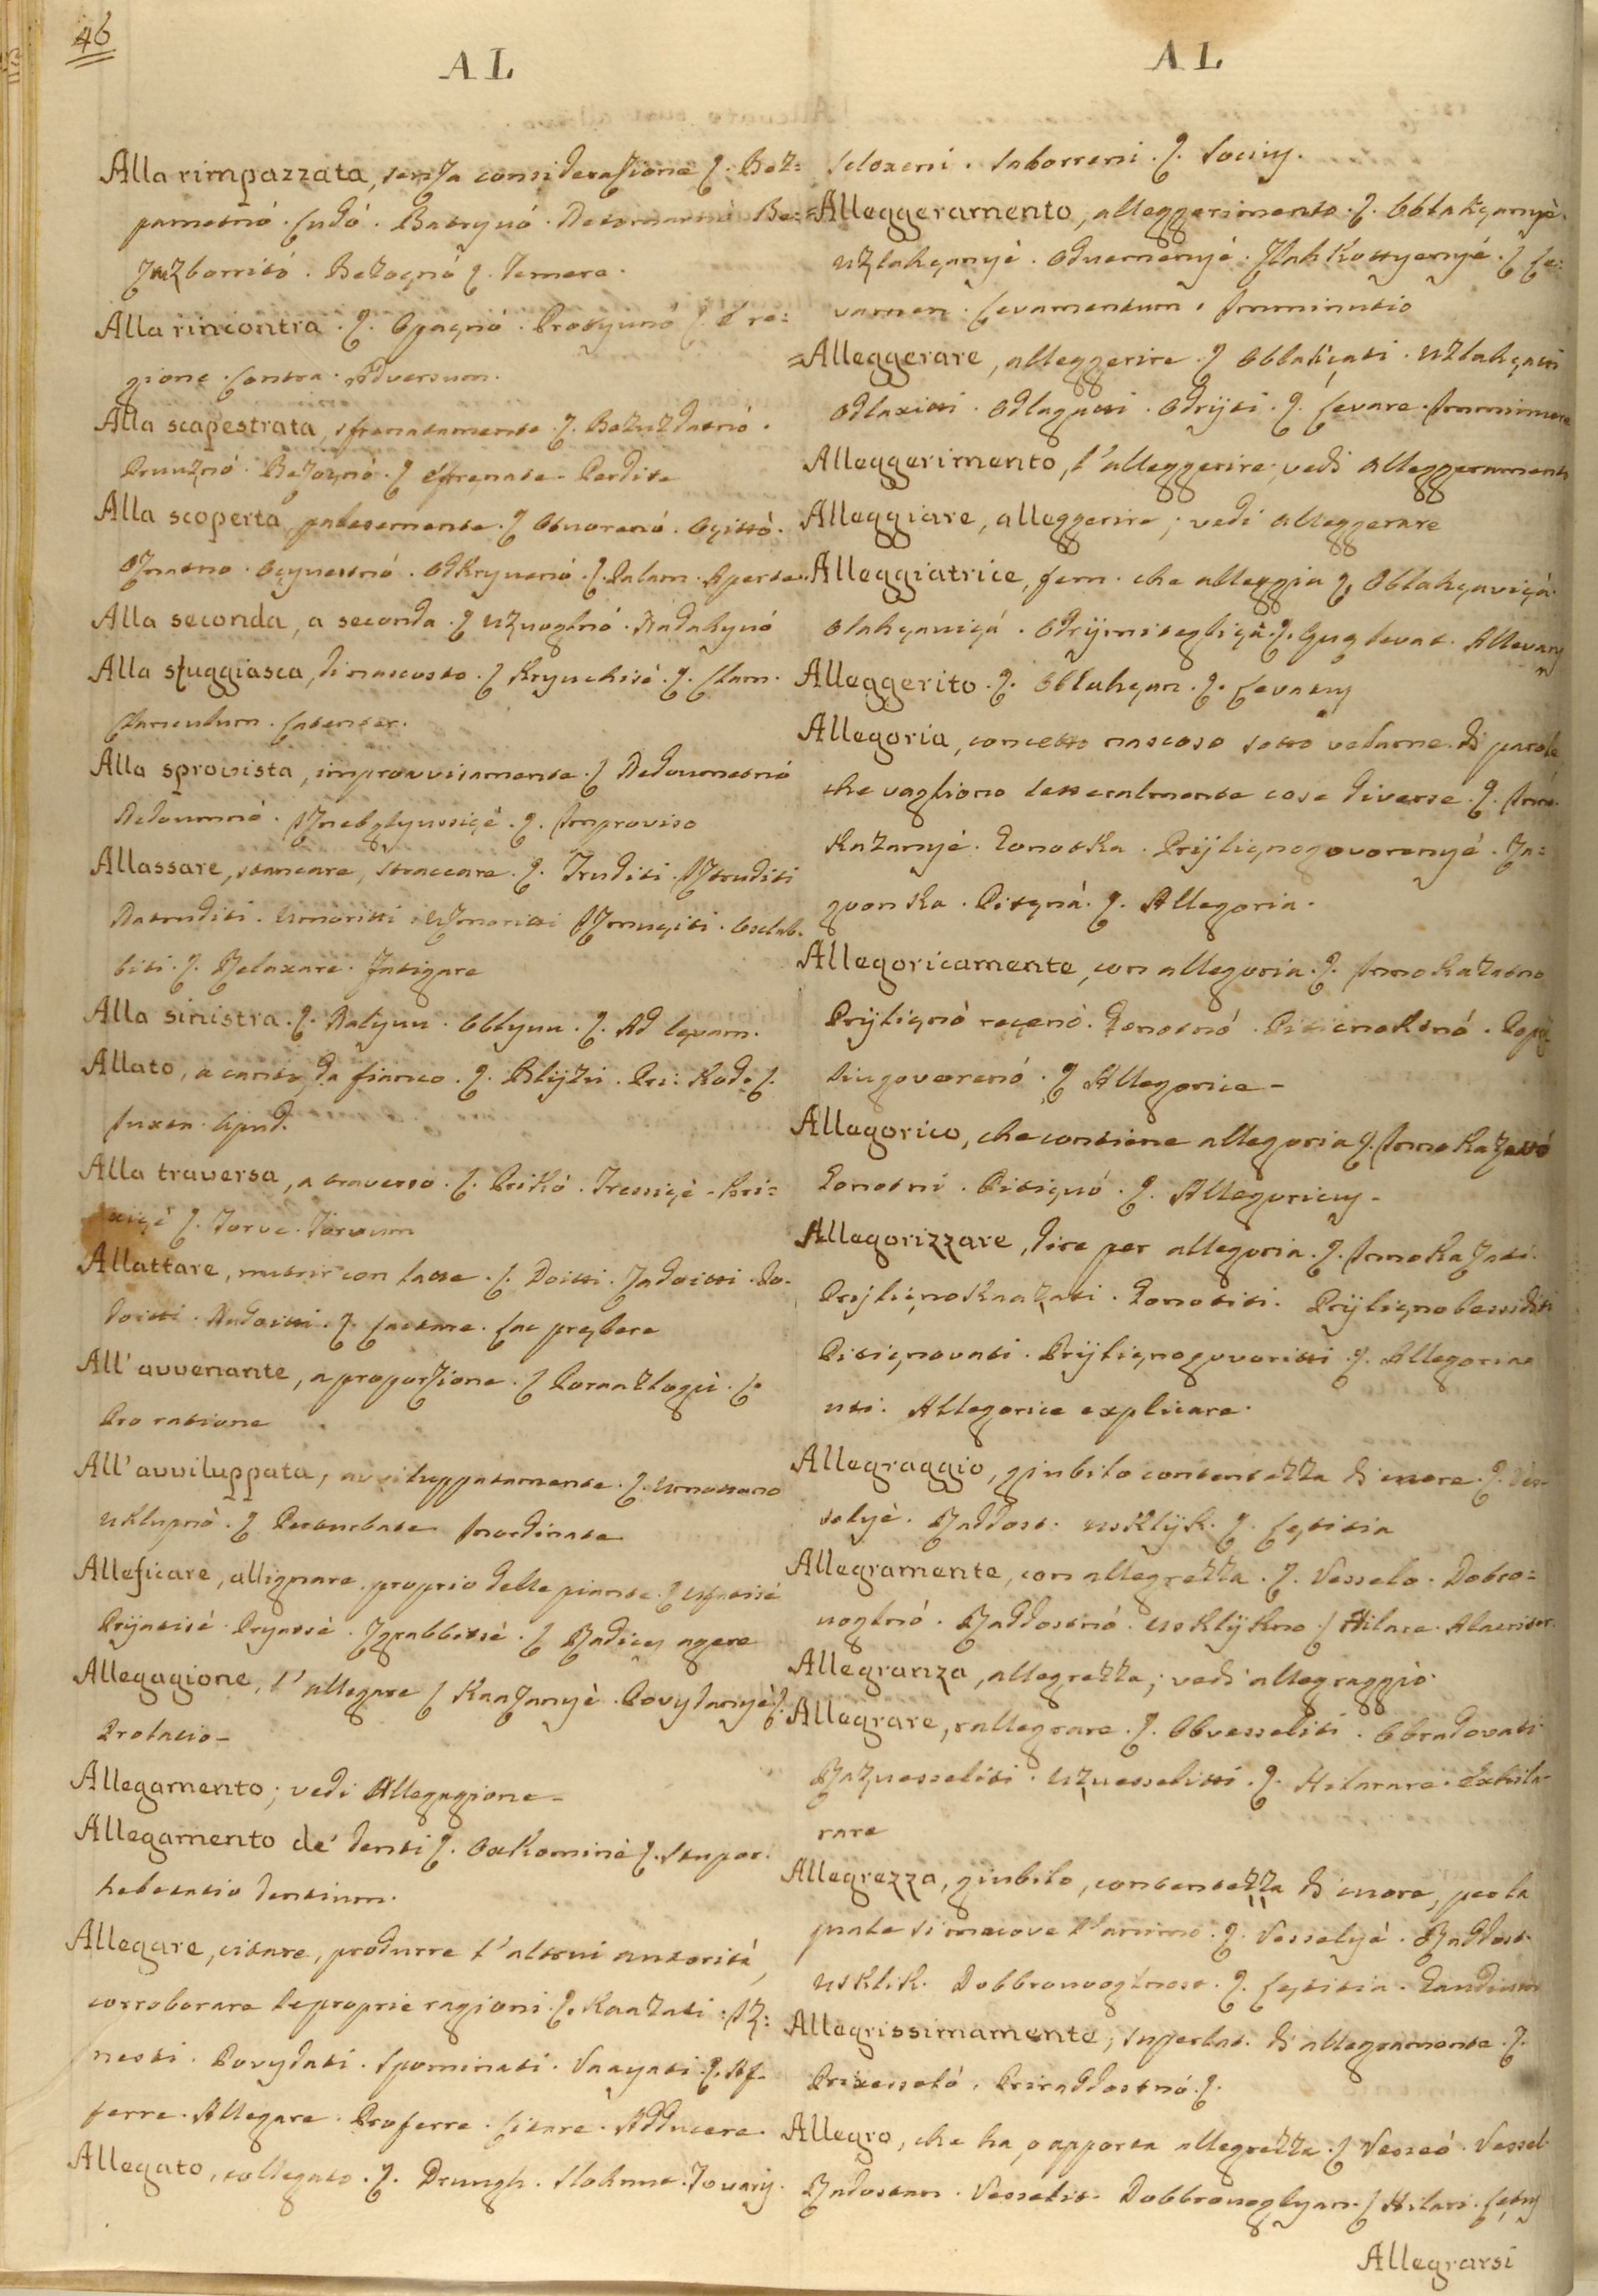 46
AL
Alla rimpazzata, senza considerazione ſ. Bez=
pametnó. Ludó. Batryvó. Be=
zuzborritó. Bezoçnó ſ. Temere.
Alla rincontra. ſ. Opaçnó. Protyvnó ſ. E re=
gione. Contra. Adversum.
Alla scapestrata, sfrenatamente. ſ. Bezuzdatnó.
Bezoçnó. ſ Effrenate. Perdite
Alla scoperta, palesemente. ſ Otuorenó. Oçittó.
Oznatno. Oçyuestnó. Odkryuenó. ſ. Palam. Aperte.
Alla seconda, a seconda. ſ uzuoglnó. Nadahynó
Alla sfuggiasca, di nascosto. ſ Kryuchisè. ſ. Clam.
Clanculum. Latenter.
Alla sprovista, improvvisamente. ſ Nedoumetnó
Nedoumnó. ſ. Improviso
Allassare, stancare, straccare. ſ. Truditi. Iztruditi
Natruditi. Umoritti. Uzmoritti Izmuçiti. Oslab=
biti. ſ. Relaxare. Fatigare
Alla sinistra. ſ. Nalyuu. Oblyuu. ſ. Ad lęvam.
Allato, a canto, da fianco. ſ. Blijzu. Pri: Kod. ſ.
Iuxta. Apud.
Alla traversa, a traverso. ſ. Prikó. Tressiçè. Kri=
uiçè ſ. Torve. Torvum
Allattare, nutrir con latte. ſ. Doitti. Zadoitti. Do=
doitti. Nadoitti. ſ. Lactare. Lac prębere
All' avvenante, a proporzione. ſ Poraazlogù. ſ.
Pro ratione
All' avviluppata, avviluppatamente. ſ. Umottano
uklupnó. ſ Perturbate Inordinate
Alleficare, allignare, proprio delle piante. ſ
Prijatisè. Pryatsè. Zgrabbitsè. ſ Radices agere
Allegagione, l' allegare ſ Kaazanyè. Povydanyè ſ.
Prolatio_
Allegamento; vedi Allegagione_
Allegamento de' denti ſ. Oskominè ſ. Stupor.
hebetatio dentium.
Allegare, citare, produrre l' altrui autorità,
corroborare le proprie ragioni. ſ. Kaazati. Iz=
nesti. Povydati. Spominati. Navyati ſ. Af=
ferre. Allegare. Proferre. Citare. Adducere.
Allegato, collegato. ſ. Drungh. Slokmut. Tovarÿ.
AL
Sdoxeni. Saborreni. ſ. Socius.
Alleggeramento, alleggerimento. ſ. Oblahçanyè.
Uzlahçanyè. Oduernenyè. Zlahkottyenyé. ſ Le=
vamen. Levamentum. Imminutio
=Alleggerare, alleggerire. ſ Oblahçati. Uzlahçatti
Odlaxitti. Odlagatti. Odrijti. ſ. Levare. Imminuere
Alleggerimento, l'alleggerire; vedi alleggeramento
Alleggiare, alleggerire; vedi alleggerare
Alleggiatrice, fem. che alleggia ſ Oblahçaviçá.
olahçaviçá. Odrijmitegliçá. ſ. Quę levat. Allevans
Alleggerito. ſ. Oblahçan. ſ. Levatus
Allegoria, concetto nascoso sotto velame di parole
che vagliono letteralmente cose diverse. ſ. Inno=
kazanyè. Zonotka. Prijliçnogovorenyé. Za=
gvonska. Pitçnà. ſ. Allegoria.
Allegoricamente, con allegoria. ſ. Innokazatno
Prijliçnó reçenó. Zonotnó. Popri=
liugovorenó. ſ Allegorice_
Allegorico, che contiene allegoria ſ. Innokazattó
Zonotni. Pitiçnó. ſ. Allegoricus_
Allegorizzare, dire per allegoria. ſ. Innokazati.
Prijliçnokaazati. Zonotiti. Prijliçnobessiditi
Pitiçnovati. Prijliçnogovoritti. ſ. Allegoriae
uti. Allegorice explicare.
Allegraggio, giubilo contentezza di cuore. ſ. Ves=
selyè. Raddost. Usklijk. ſ. Lętitia
Allegramente, con allegrezza. ſ. Vesselo. Dobro=
uoglnó. Raddostnó. Usklijkno. ſ Hilare. Alacriter.
Allegranza, allegrezza; vedi allegraggio.
Allegrare, rallegrare. ſ. Obvesseliti. Obradovati
Razuesseliti. Uzuesselitti. ſ. Hilarare. Exhila=
rare
Allegrezza, giubilo, contentezza di cuore, per la
quale si muove l'animo. ſ. Vesselyè. Raddost.
Usklik. Dobbrouoglnost. ſ. Lętitia. Gaudium
Allegrissimamente, superlat. di allegramente. ſ.
Privesseló. Priraddostnó. ſ.
Allegro, che ha, o apporta allegrezza. ſ Vesseó. Vessel.
Radostan. Vesselit. Dobbrouoglyan. ſ Hilaris. Lętus
Allegrarsi